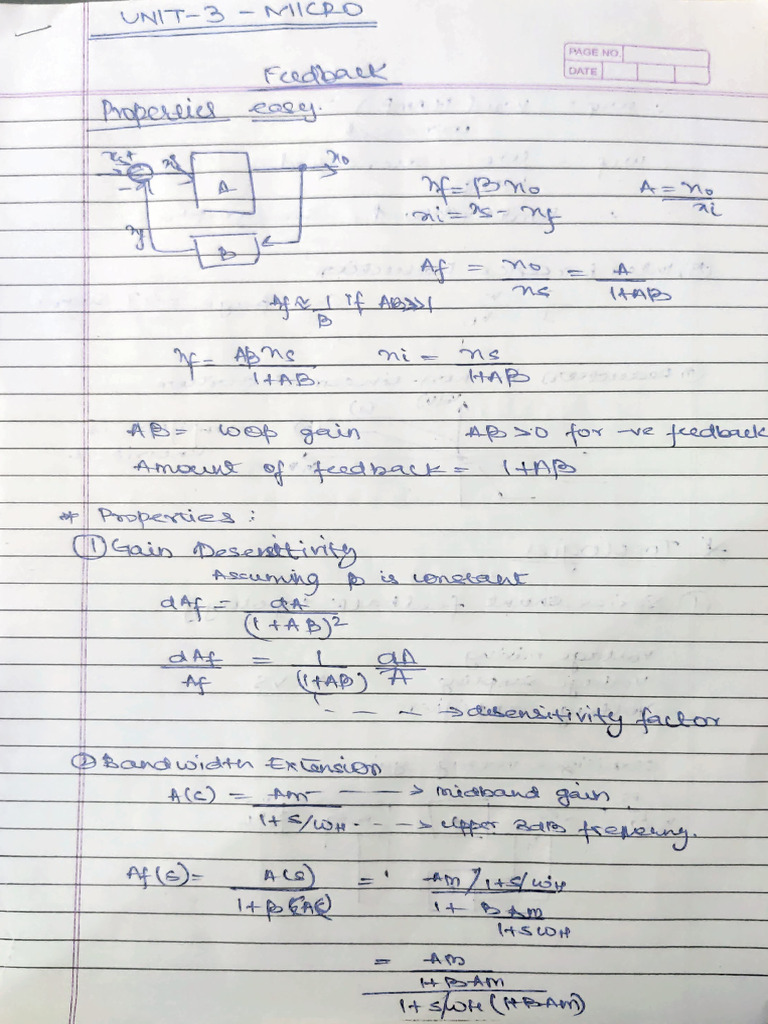 UNIT-3 - MICRO
PAGE NO.
DATE
Feedback
Properties easy.
xs + xi A xo
-
xf B
xf = βxo A = xo/xi
xi = xs - xf
Af = xo/xs = A/1+AB
Af ≈ 1/B if AB>>1
xf = ABxs/1+AB. xi = xs/1+AB
AB = loop gain AB>0 for -ve feedback
Amount of feedback = 1+AB
* Properties :
① Gain Desensitivity
Assuming β is constant
dAf = dA/(1+AB)²
dAf/Af = 1/(1+AB) dA/A
- - - → desensitivity factor
② Bandwidth Extension
A(s) = Am/1+s/ωH ---→ midband gain
---→ upper 3dB frequency.
Af(s) = A(s)/1+β(A(s)) = Am/1+s/ωH / 1+ BAm/1+sωH
= Am/1+BAm / 1+s/ωH(1+BAm)